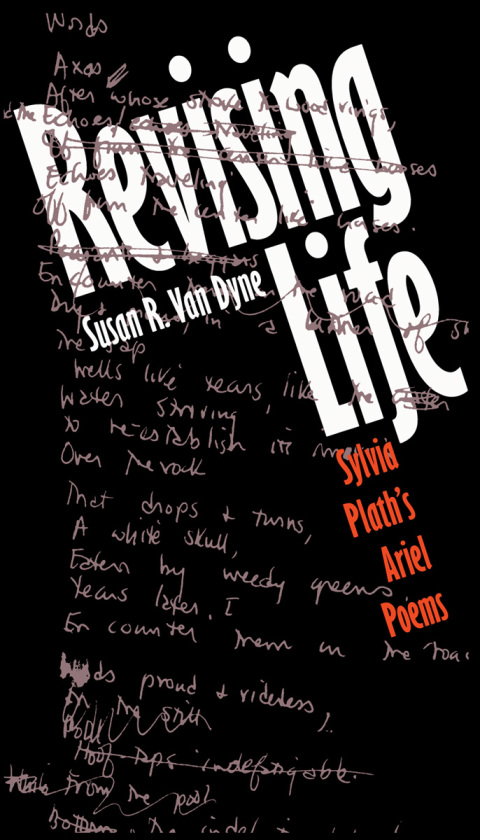 Words
Axes
After whose stroke the wood rings,
& the Echoes! echoes traveling
Off from the center like horses
Echoes traveling
Off from the center like horses.
Revising
Life
Susan R. Van Dyne
Encounter on the road
Dry &
The sap
Wells like tears, like the
Water striving
to re-establish its mirror
Over the rock
That drops & turns,
A white skull,
Eaten by weedy greens
Years later, I
Encounter them on the road
Words proud & riderless,
Hoof taps indefatigable.
From the pool
Sylvia
Plath's
Ariel
Poems